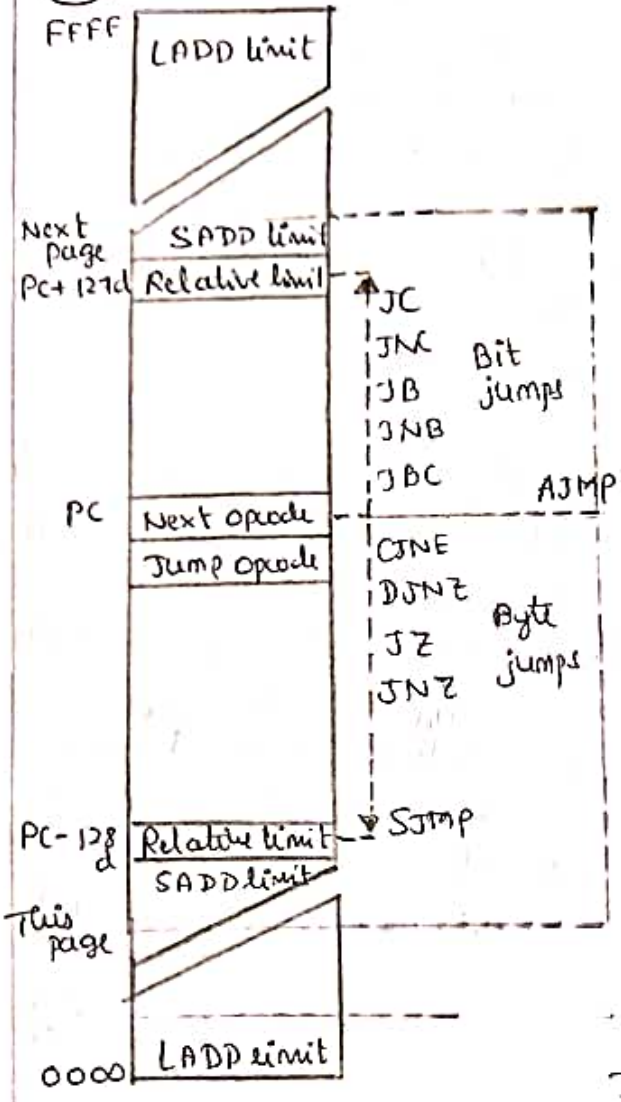 FFFF
LADD limit
Next
page
SADD limit
PC+127d
Relative limit
JC
JNC
JB
JNB
JBC
Bit
jumps
AJMP
PC
Next opcode
Jump opcode
CJNE
DJNZ
JZ
JNZ
Byte
jumps
PC-128
d
Relative limit
SJMP
SADD limit
This
page
LADD limit
0000